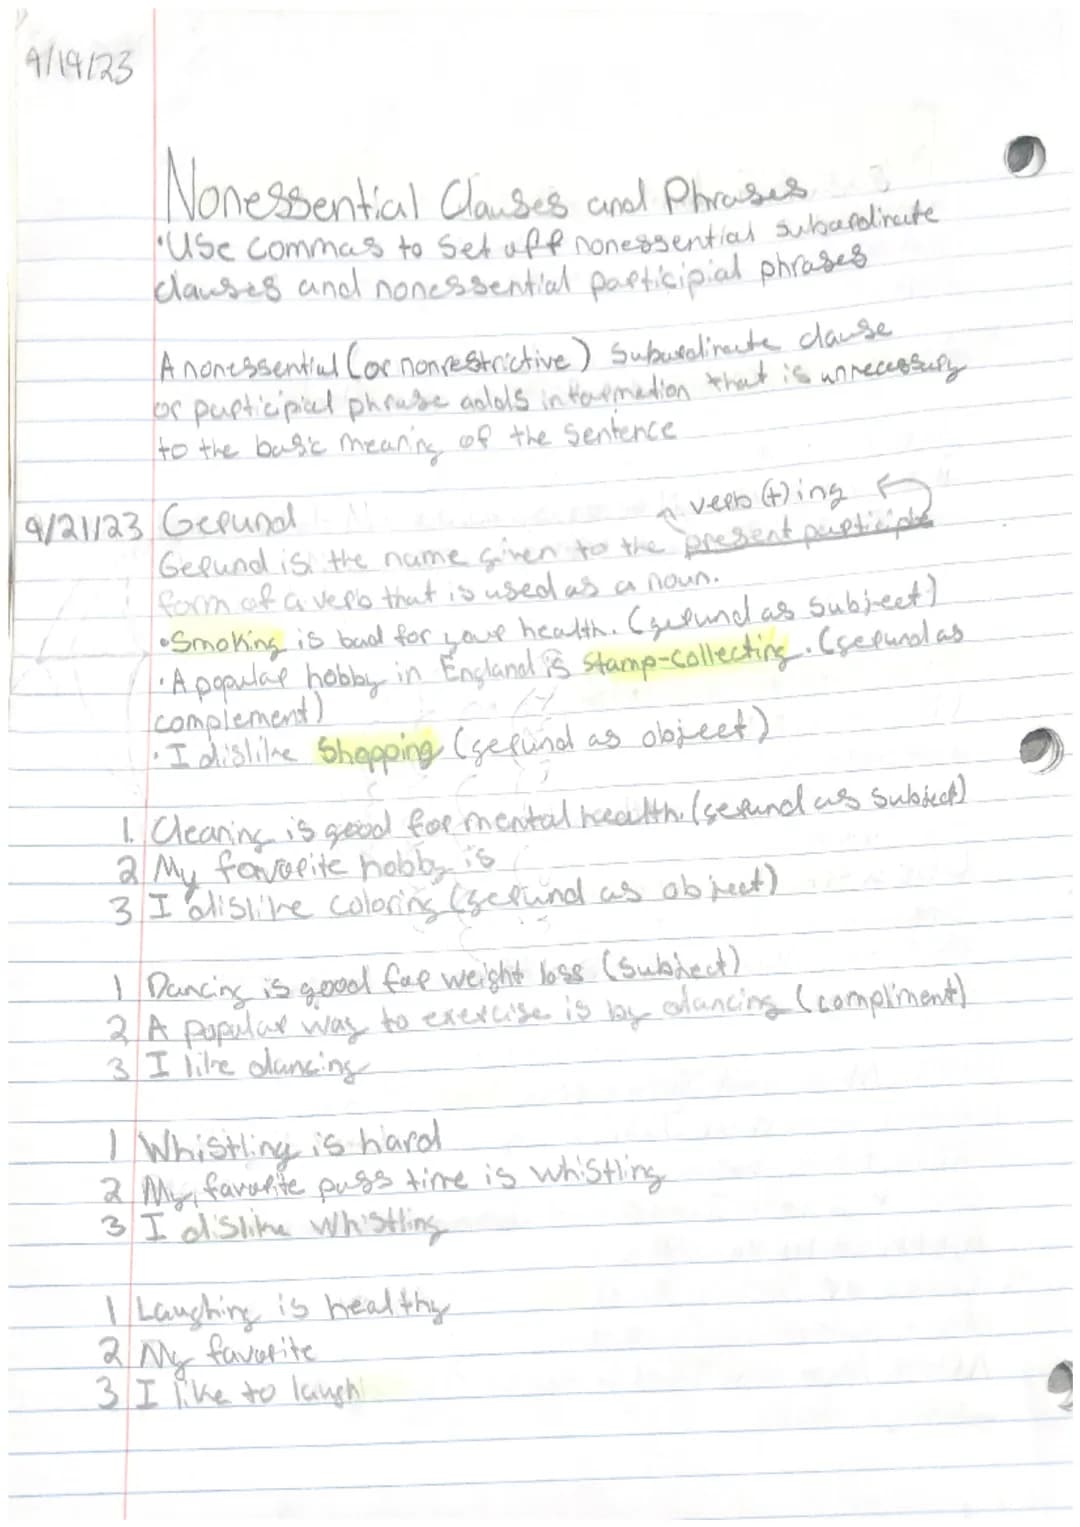 9/19/23
Nonessential Clauses and Phrases
•Use commas to set off nonessential subordinate
clauses and nonessential participial phrases
A nonessential (or nonrestrictive) subordinate clause
or participial phrase adds information that is unnecessary
to the basic meaning of the sentence
verb (+) ing
9/21/23 Gerund
Gerund is the name given to the present participle
form of a verb that is used as a noun.
•Smoking is bad for your health. (gerund as subject)
•A popular hobby in England is stamp-collecting. (gerund as
complement)
•I dislike Shopping (gerund as object)
1. Cleaning is good for mental health. (gerund as subject)
2 My favorite hobby is
3 I dislike coloring (gerund as object)
1 Dancing is good for weight loss (subject)
2 A popular way to exercise is by dancing (compliment)
3 I like dancing
1 Whistling is hard
2 My favorite pass time is whistling
3 I dislike whistling
1 Laughing is healthy
2 My favorite
3 I like to laugh